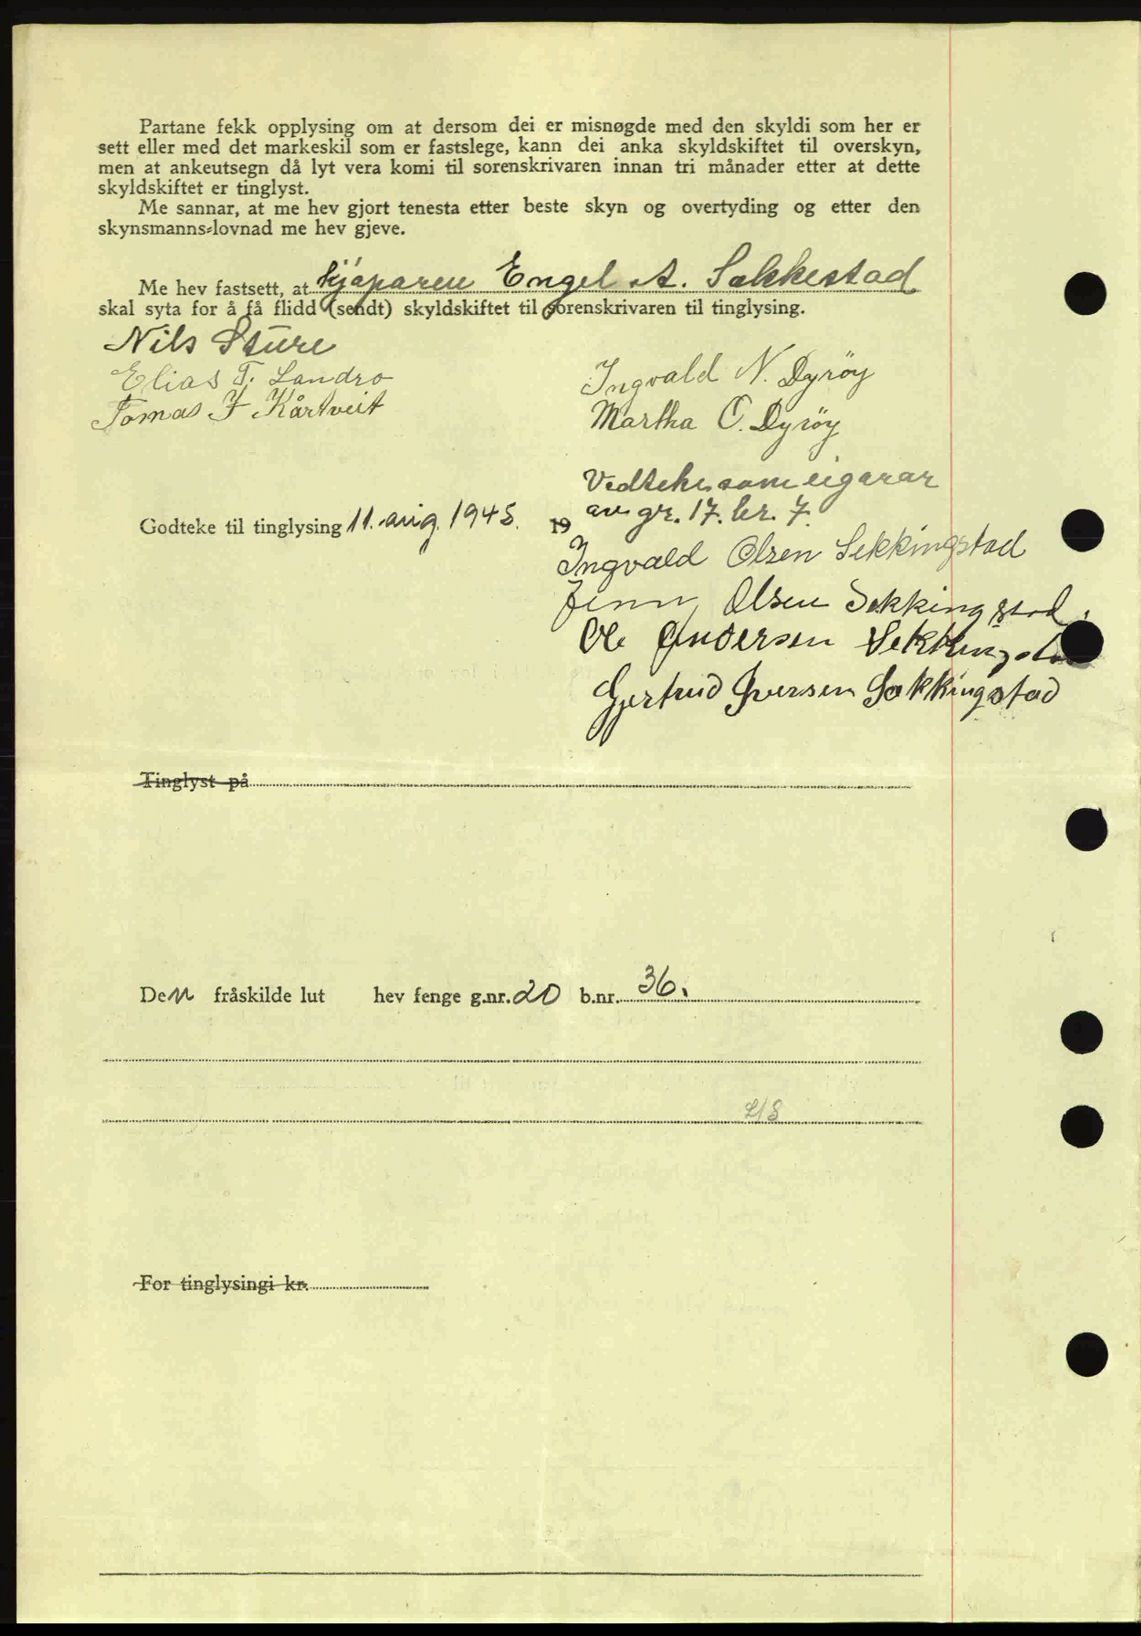 Partane fekk opplysing om at dersom dei er misnøgde med den skyldi som her er
sett eller med det markeskil som er fastslege, kann dei anka skyldskiftet til overskyn,
men at ankeutsegn då lyt vera komi til sorenskrivaren innan tri månader etter at dette
skyldskiftet er tinglyst.
Me sannar, at me hev gjort tenesta etter beste skyn og overtyding og etter den
skynsmanns-lovnad me hev gjeve.
Me hev fastsett, at kjøparen Engel A. Sekkestad
skal syta for å få flidd (sendt) skyldskiftet til sorenskrivaren til tinglysing.
Nils Sture
Elias T. Landro
Tomas J Kårtveit
Ingvald N. Dyrøy
Martha O. Dyrøy
Vedteke som eigarar
av gr. 17. br. 7.
Godteke til tinglysing 11. aug. 1945. 19
Ingvald Olsen Sekkingstad
Olsen Sekkingstad.
Ole Andersen Sekkingstad
Gjertrud Iversen Sekkingstad
Tinglyst på
Den fråskilde lut hev fenge g.nr. 20 b.nr. 36.
For tinglysingi kr.